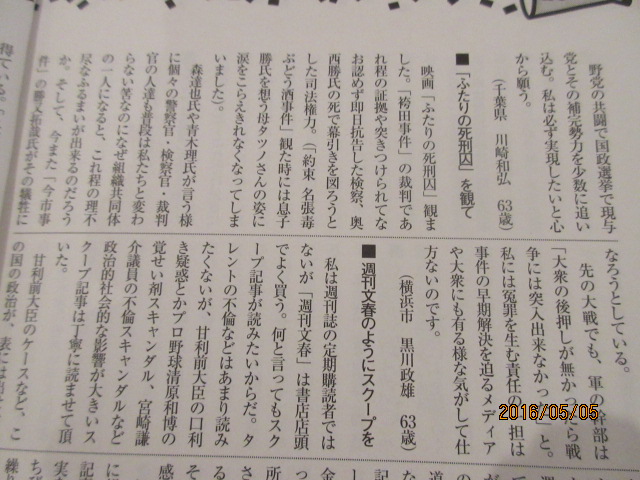 野党の共闘で国政選挙で現与
党とその補完勢力を少数に追い
込む。私は必ず実現したいと心
から願う。
(千葉県　川崎和弘　63歳)
■「ふたりの死刑囚」を観て
映画「ふたりの死刑囚」観ま
した。「袴田事件」の裁判であ
れ程の証拠や突きつけられてな
お認めず即日抗告した検察、奥
西勝氏の死で幕引きを図ろうと
した司法権力。(「約束 名張毒
ぶどう酒事件」観た時には息子
勝氏を想う母タツノさんの姿に
涙をこらえきれなくなってしま
いました)。
森達也氏や青木理氏が言う様
に個々の警察官・検察官・裁判
官の人達も普段は私たちと変わ
らない筈なのになぜ組織共同体
の一人になると、これ程の理不
尽なふるまいが出来るのだろう
か。そして、今また「今市事
件」の勝又拓哉氏がその犠牲に
なろうとしている。
先の大戦でも、軍の幹部は
「大衆の後押しが無かったら戦
争には突入出来なかった」と。
私には冤罪を生む責任の一担は
事件の早期解決を迫るメディア
や大衆にも有る様な気がして仕
方ないのです。
(横浜市　黒川政雄　63歳)
■週刊文春のようにスクープを
私は週刊誌の定期購読者では
ないが「週刊文春」は書店店頭
でよく買う。何と言ってもスク
ープ記事が読みたいからだ。タ
レントの不倫などはあまり読み
たくないが、甘利前大臣の口利
き疑惑とかプロ野球清原和博の
覚せい剤スキャンダル、宮崎謙
介議員の不倫スキャンダルなど
政治的社会的な影響が大きいス
クープ記事は丁寧に読ませて頂
いた。
甘利前大臣のケースなど、こ
の国の政治が、表には出
2016/05/05